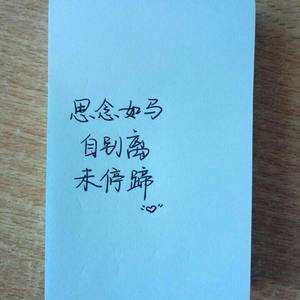 思念如马
自别离
未停蹄